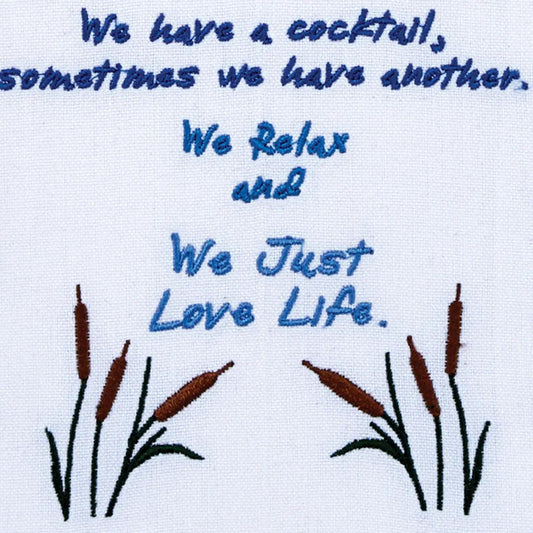 We have a cocktail,
sometimes we have another.
We Relax
and
We Just
Love Life.